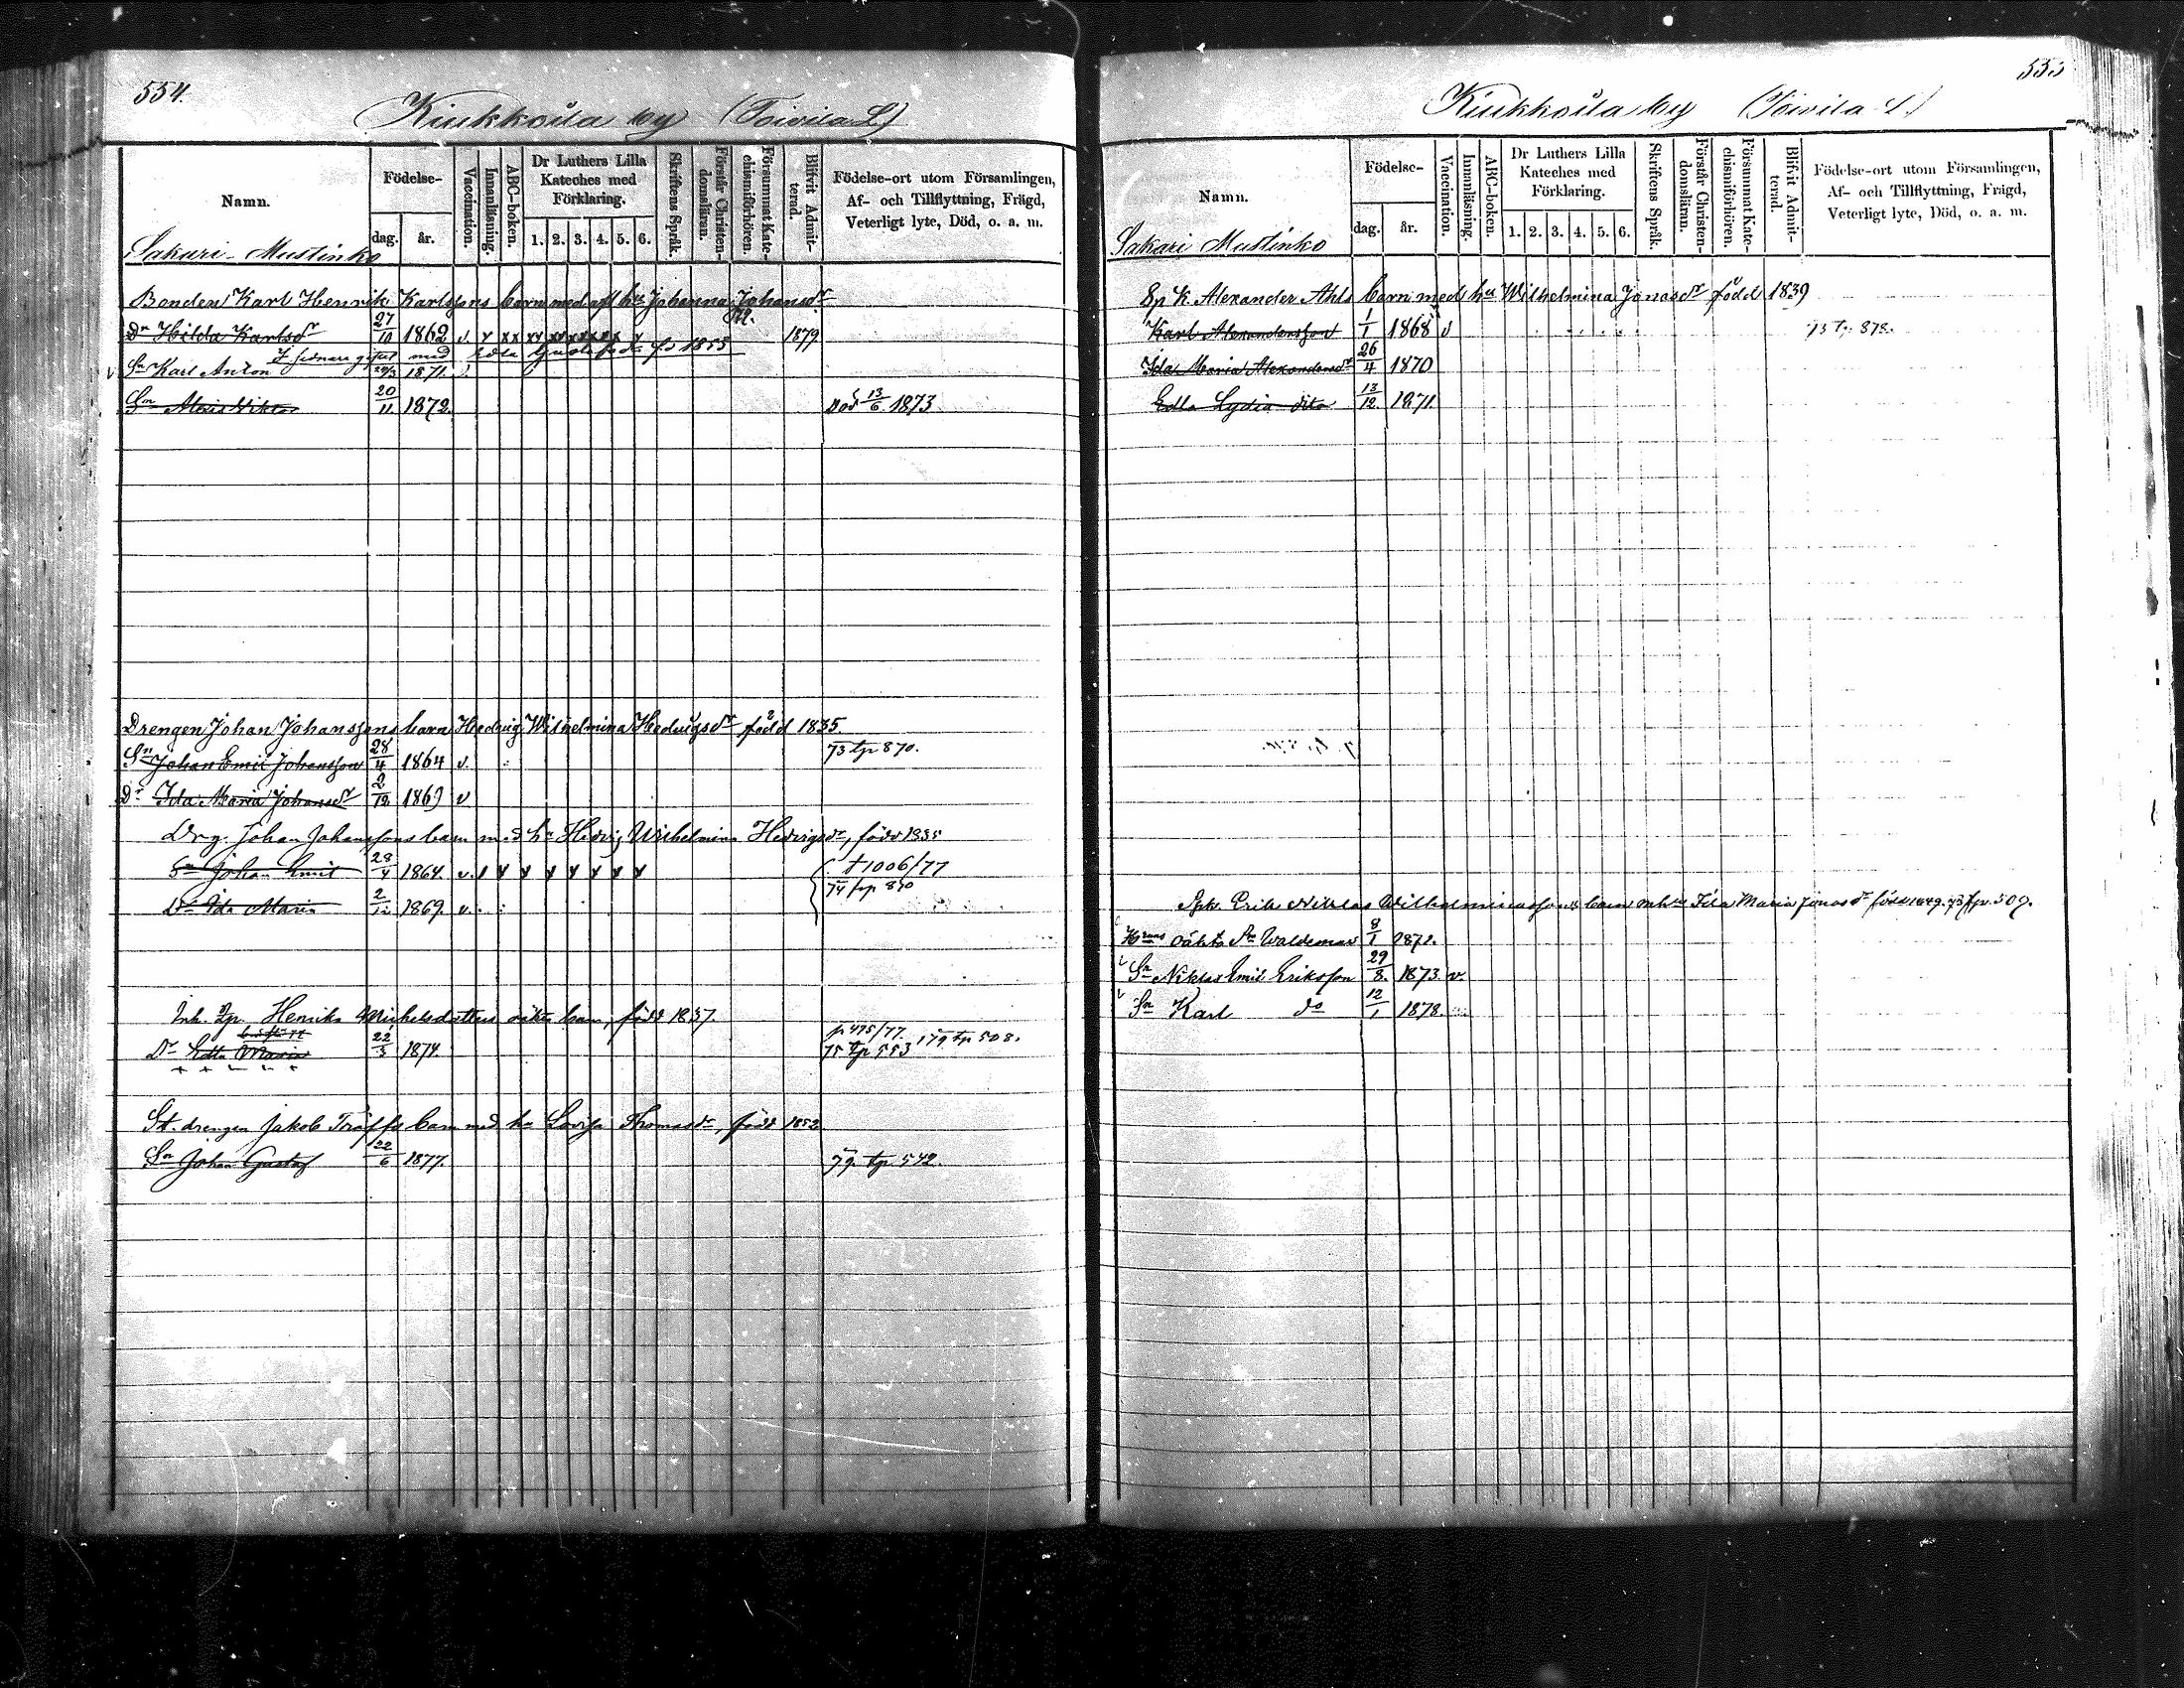 554.
Kiukkoila by (Toivila L)
Namn.
Födelse-
dag.
år.
Vaccination.
Innanläsning.
ABC-boken.
Dr Luthers Lilla Kateches med Förklaring.
1. 2. 3. 4. 5. 6.
Skriftens Språk.
Förstår Christendomsläran.
Försummat Katechismiförhören.
Blifvit Admitterad.
Födelse-ort utom Församlingen, Af- och Tillflyttning, Frägd, Veterligt lyte, Död, o. a. m.
Sakari Mustinko
Bonden Karl Henrik Karlssons barn med afl hu Johanna Johansdr
Dr Hilda Karlsdr 27/10 1862 v. x xx xy 1879
2 senare gift med Edla
Sn Karl Anton 29/3 1871.
Sn Alexis Viktor 20/11 1872. Död 13/6 1873
Drengen Johan Johanssons barn Hedvig Wilhelmina Hedvigsdr född 1835.
Sn Johan Emil Johansson 28/4 1864 v. 73 tp 870.
Dr Ida Maria Johansdr 2/12 1869 v
Drg. Johan Johanssons barn med hu Hedvig Wilhelmina Hedvigsdr, född 1835
Sn Johan Emil 28/4 1864. v. x x x x x x x † 1006/77
Dr Ida Maria 2/12 1869. v. 74 tp 870
Inh. Henrika Michelsdotters oäkta barn, född 1837.
Dr Edla Maria 22/3 1874. p 475/77. 75 tp 553 179 tp 508.
St. drengen Jakob Träffs barn med hu Lovisa Thomasdr, född 1852
Sn Johan Gustaf 22/6 1877. 79. tp. 542.
555
Kiukkoila by (Toivila L.)
Namn.
Födelse-
dag.
år.
Vaccination.
Innanläsning.
ABC-boken.
Dr Luthers Lilla Kateches med Förklaring.
1. 2. 3. 4. 5. 6.
Skriftens Språk.
Förstår Christendomsläran.
Försummat Katechismiförhören.
Blifvit Admitterad.
Födelse-ort utom Församlingen, Af- och Tillflyttning, Frägd, Veterligt lyte, Död, o. a. m.
Sakari Mustinko
Sp K Alexander Ahls barn med hu Wilhelmina Jonasdr född 1839
Karl Alexandersson 1/1 1868 v 73 tp 878.
Ida Maria Alexandersdr 26/4 1870
Edla Lydia dito 13/12. 1871.
Spk. Erik Niklas Wilhelminassons barn m hu Ida Maria Jonasdr född 1849. 73 tp. 509.
Hrnas oäkta Sn Waldemar 8/1 1872.
Sn Niklas Emil Eriksson 29/8. 1873. v.
Sn Karl do 12/1 1878.